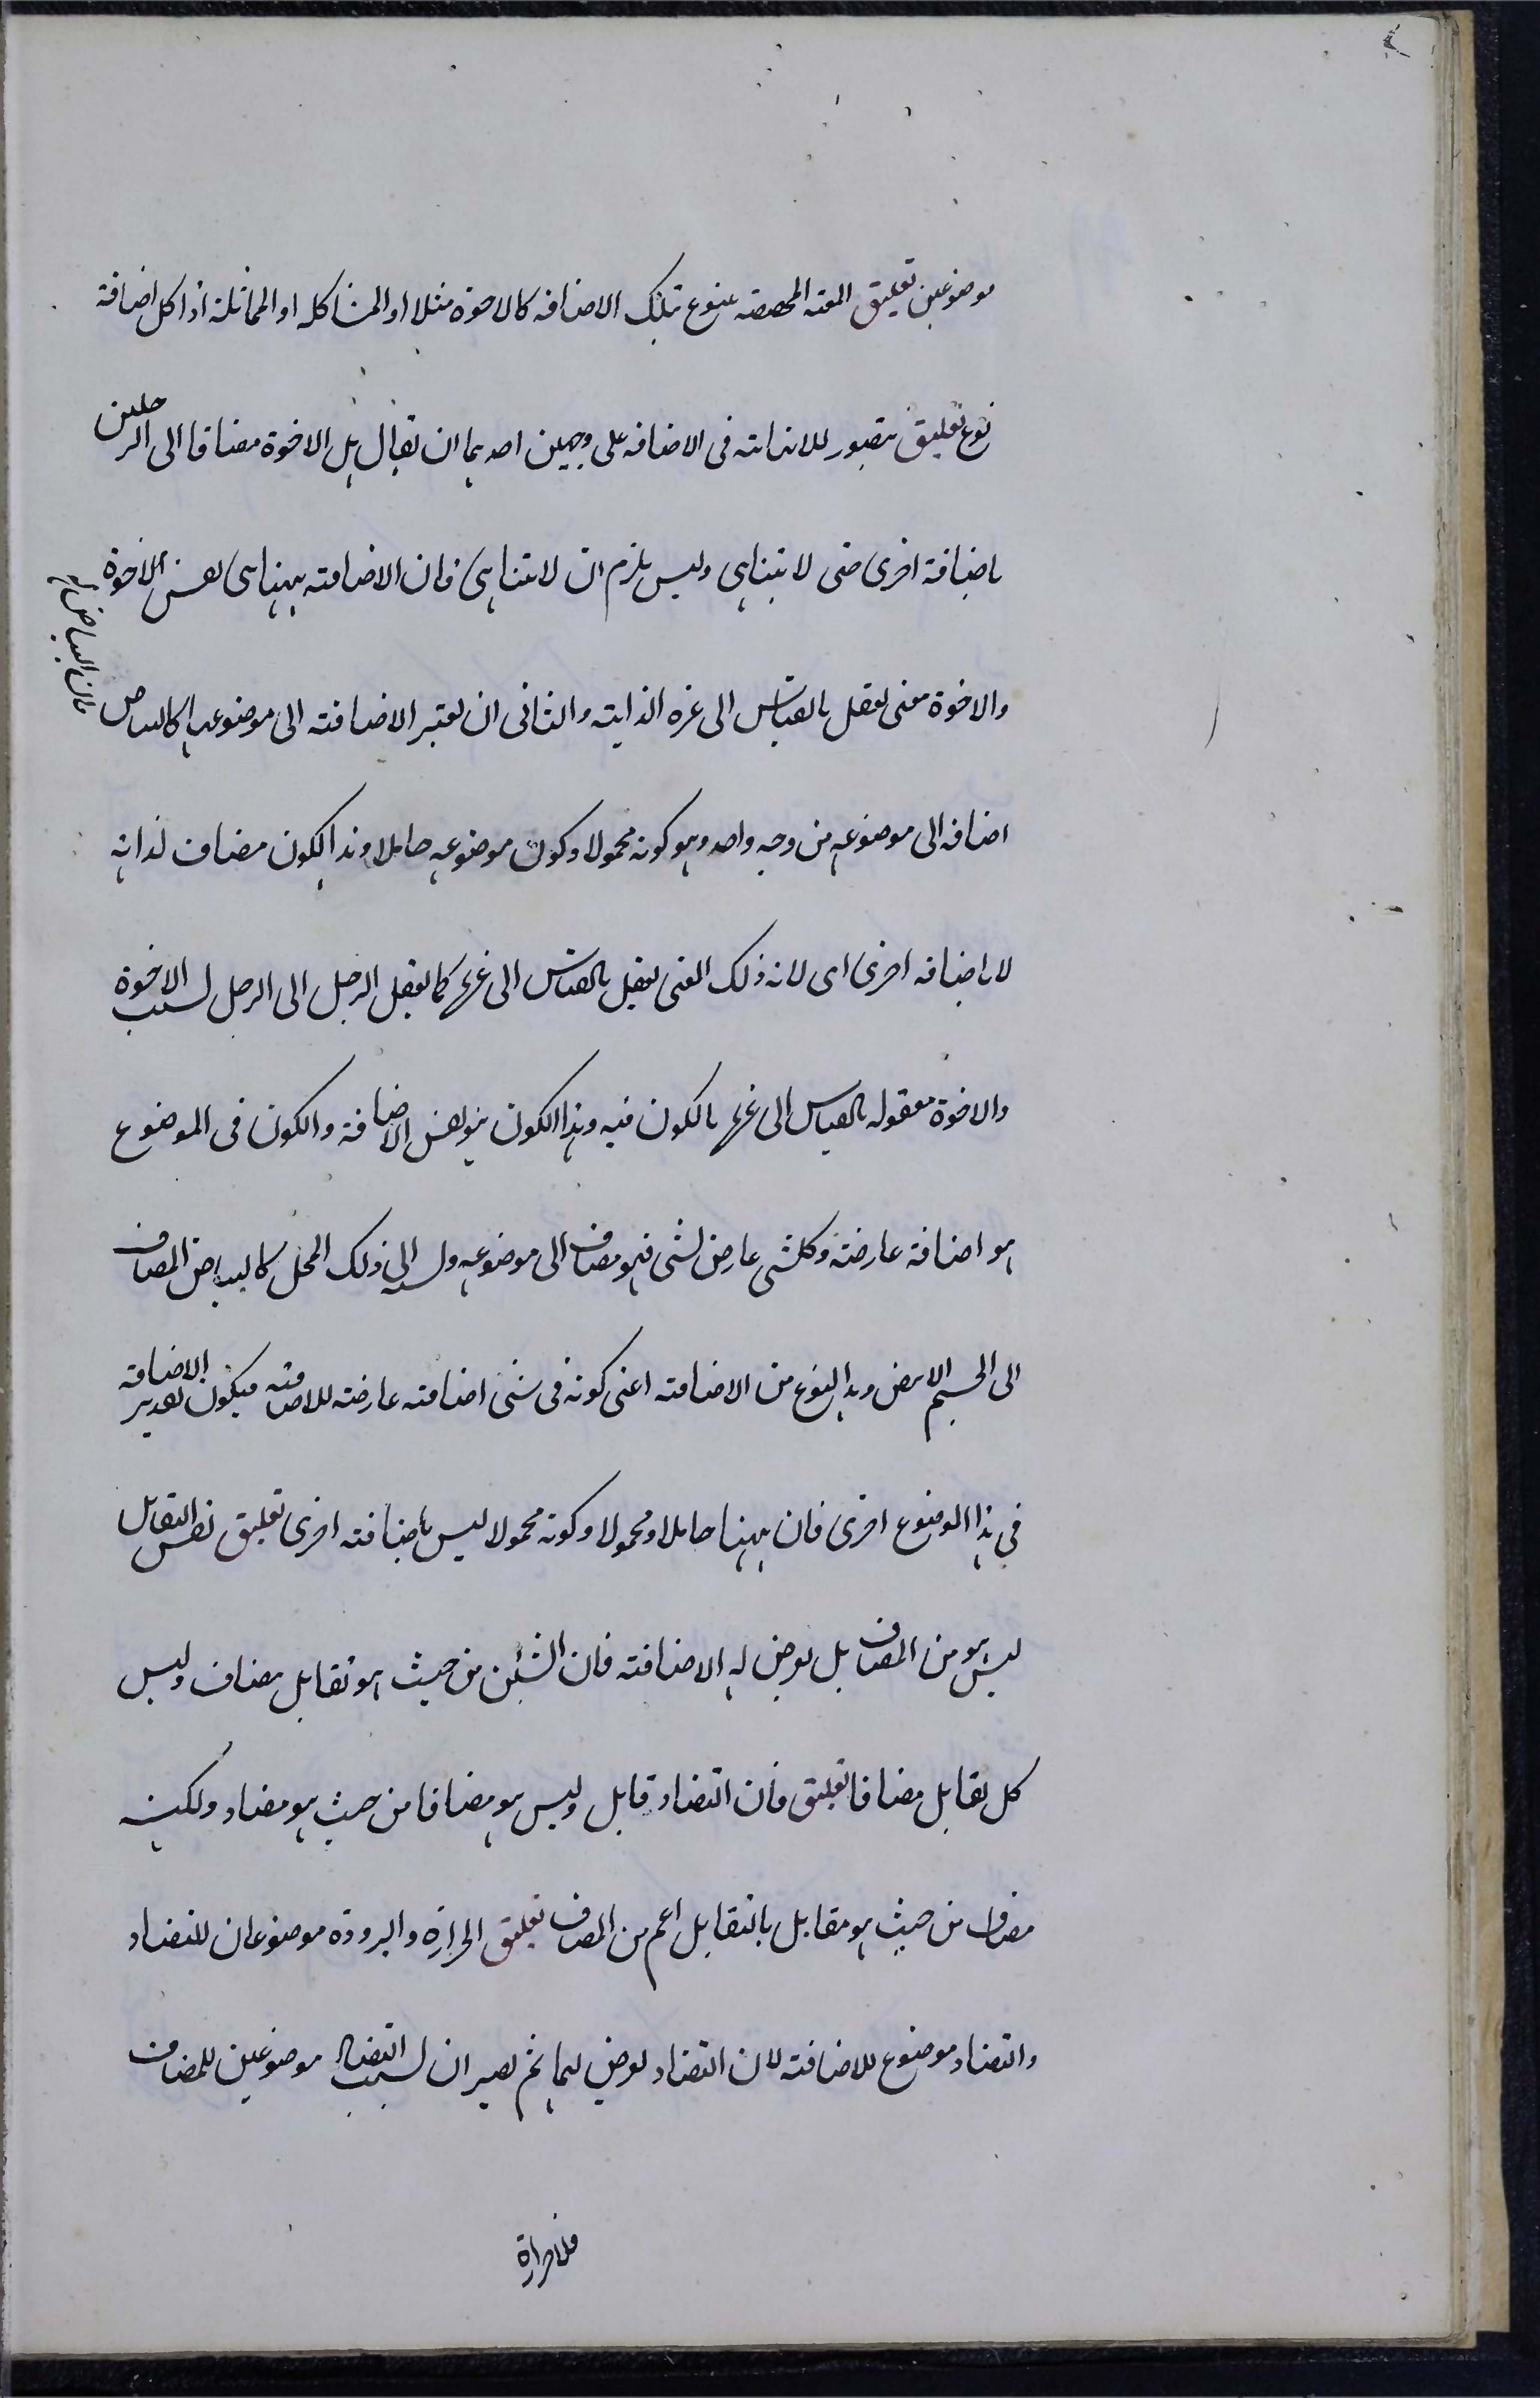 موضوعين تعليق المعية المخصصة بنوع تلك الاضافه كالاخوة مثلا او المشاكله او المماثلة اذا كل اضافة
نوع تعليق يتصور للانهاية فى الاضافه على وجهين احدهما ان يقال هل الاخوة مضافا الى الرجلين
باضافة اخرى حتى لا يتناهى وليس يلزم ان لا يتناهى فان الاضافته ههنا هى نفس الاخوة
والاخوة معنى يعقل بالقياس الى غيره لذاته والثانى ان يعتبر الاضافته الى موضوعها كالبياض
فان البياض له
اضافه الى موضوعه من وجه واحد وهو كونه محمولا وكون موضوعه حاملا وهذا الكون مضاف لذاته
لا باضافه اخرى اى لانه ذلك المعنى يعقل بالقياس الى غيره كما يعقل الرجل الى الرجل لسبب الاخوة
والاخوة معقوله بالقياس الى غيرها بالكون فيه وهذا الكون هو نفس الاضافة والكون فى الموضوع
هو اضافة عارضته وكل شى عارض لشى فهو مضاف الى موضوعه والى ذلك المحل كالبياض المضاف
الى الجسم الابيض وهذا النوع من الاضافته اعنى كونه فى شى اضافته عارضته للاضافته فيكون تقدير الاضافة
فى هذا الموضوع اخرى فان ههنا حاملا ومحمولا وكونه محمولا ليس باضافته اخرى تعليق نفس التقابل
ليس هو من المضاف بل يعرض له الاضافته فان الشيئين من حيث هو تقابل مضاف وليس
كل تقابل مضافا تعليق فان التضاد قابل وليس هو مضافا من حيث هو مضاد ولكنه
مضاف من حيث هو مقابل بالتقابل اعم من المضاف تعليق الحرارة والبرودة موضوعان للتضاد
والتضاد موضوع للاضافته لان التضاد يعرض لهما ثم يصيران لسبب التضاد موضوعين للمضاف
فللحرارة